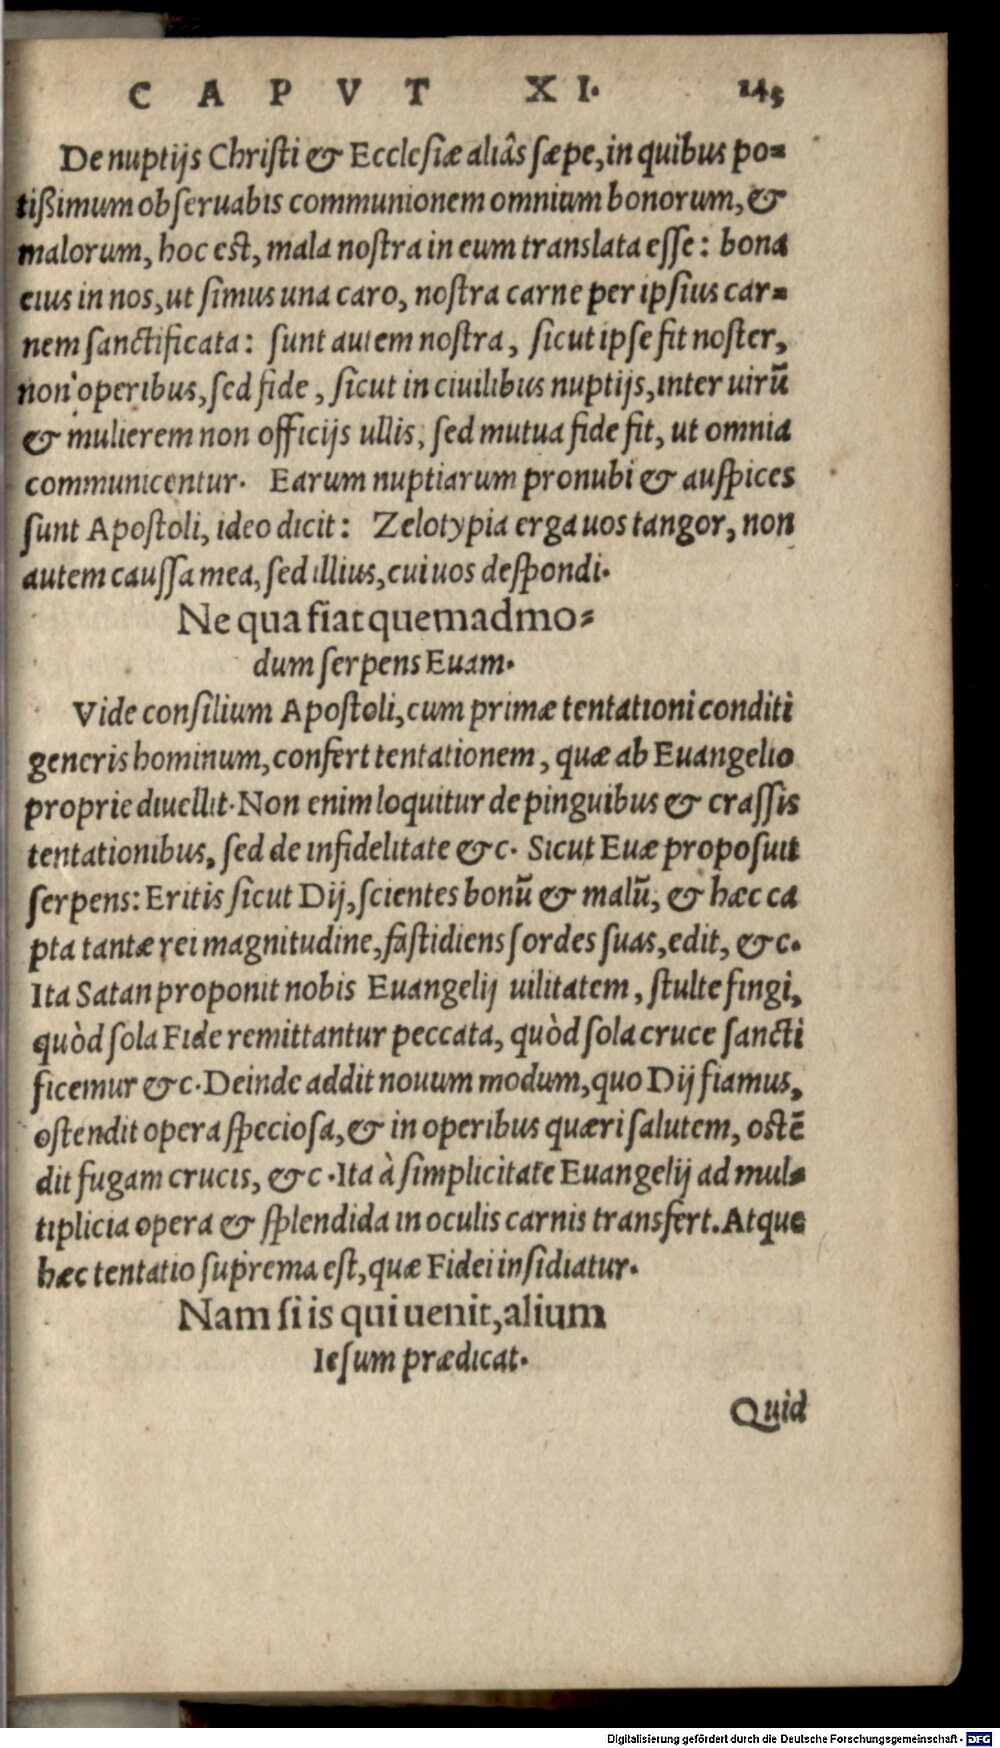 CAPVT XI. 145
De nuptijs Christi & Ecclesiæ aliâs sæpe, in quibus po-
tißimum obseruabis communionem omnium bonorum, &
malorum, hoc est, mala nostra in eum translata esse: bona
eius in nos, ut simus una caro, nostra carne per ipsius car-
nem sanctificata: sunt autem nostra, sicut ipse fit noster,
non operibus, sed fide, sicut in ciuilibus nuptijs, inter uirũ
& mulierem non officijs ullis, sed mutua fide fit, ut omnia
communicentur. Earum nuptiarum pronubi & auspices
sunt Apostoli, ideo dicit: Zelotypia erga uos tangor, non
autem caussa mea, sed illius, cui uos despondi.
Ne qua fiat quemadmo-
dum serpens Euam.
Vide consilium Apostoli, cum primæ tentationi conditi
generis hominum, confert tentationem, quæ ab Euangelio
proprie diuellit. Non enim loquitur de pinguibus & crassis
tentationibus, sed de infidelitate &c. Sicut Euæ proposuit
serpens: Eritis sicut Dij, scientes bonũ & malũ, & hæc ca
pta tantæ rei magnitudine, fastidiens sordes suas, edit, &c.
Ita Satan proponit nobis Euangelij uilitatem, stulte fingi,
quòd sola Fide remittantur peccata, quòd sola cruce sancti
ficemur &c. Deinde addit nouum modum, quo Dij fiamus,
ostendit opera speciosa, & in operibus quæri salutem, ostẽ
dit fugam crucis, &c. Ita à simplicitate Euangelij ad mul-
tiplicia opera & splendida in oculis carnis transfert. Atque
hæc tentatio suprema est, quæ Fidei insidiatur.
Nam si is qui uenit, alium
Iesum prædicat.
Quid
Digitalisierung gefördert durch die Deutsche Forschungsgemeinschaft - DFG